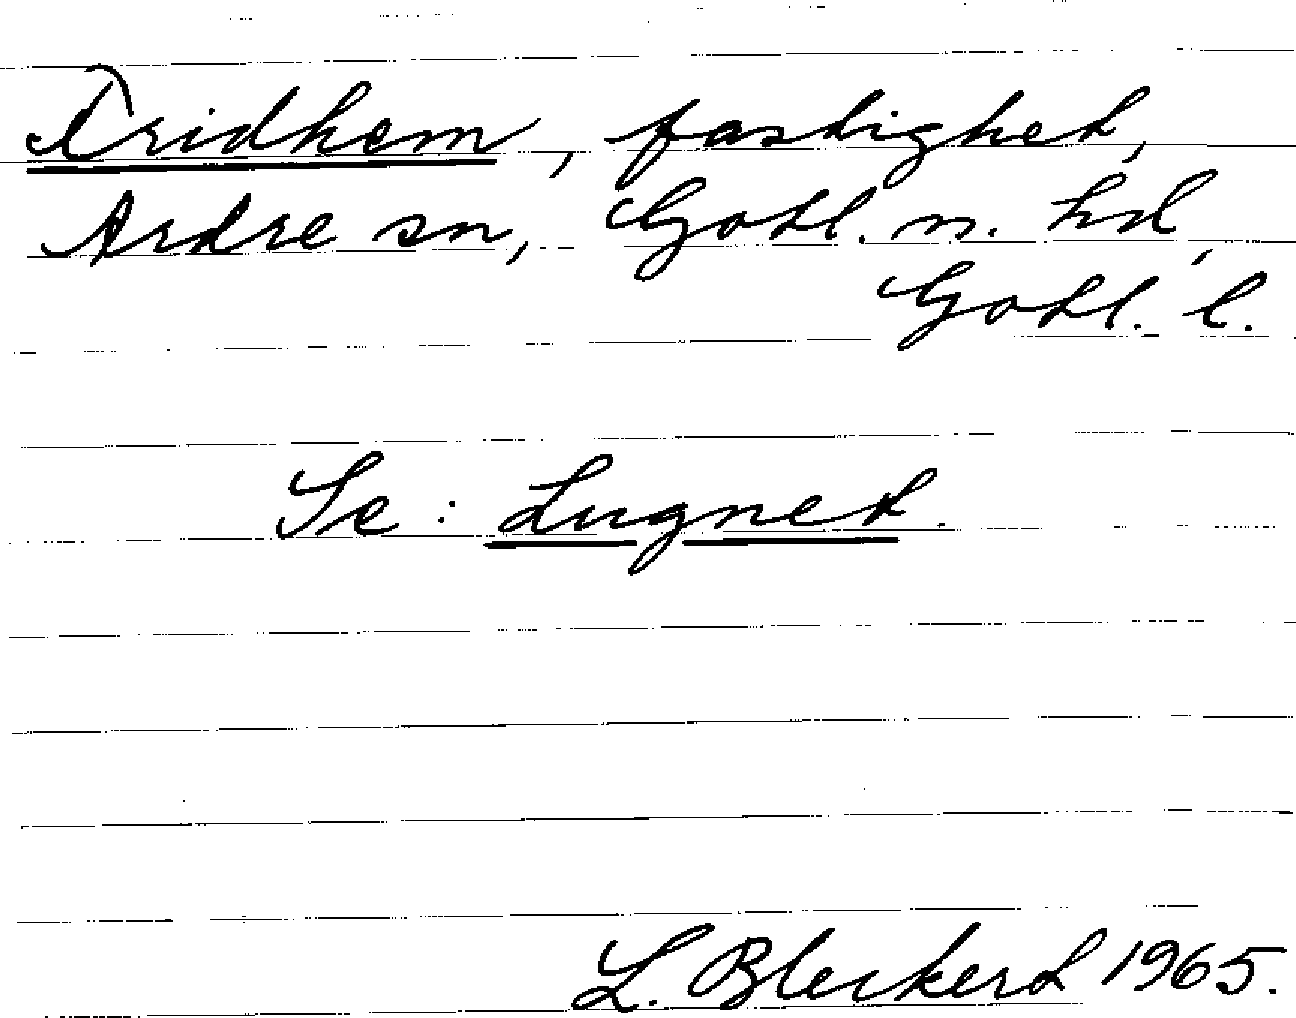 Fridhem, fastighet,
Ardre sn, Gotl. n. hd,
Gotl. l.
Se: Lugnet.
L. Bleckert 1965.